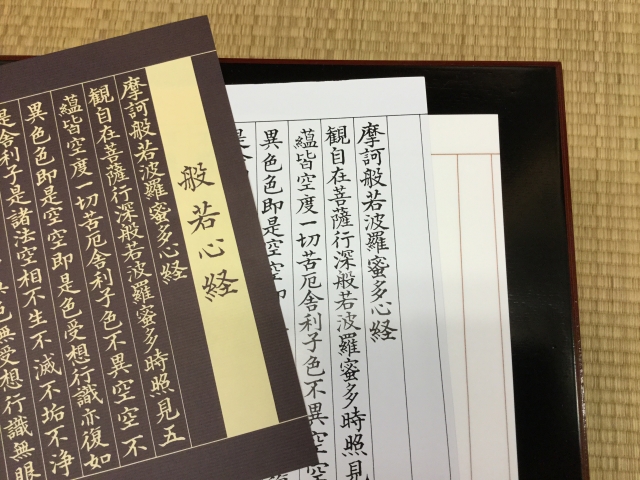 般若心経
摩訶般若波羅蜜多心経
観自在菩薩行深般若波羅蜜多時照見五
蘊皆空度一切苦厄舎利子色不異空空不
異色色即是空空即是色受想行識亦復如
是舎利子是諸法空相不生不滅不垢不浄
無受想行識無眼
摩訶般若波羅蜜多心経
観自在菩薩行深般若波羅蜜多時照見
蘊皆空度一切苦厄舎利子色不異空
異色色即是空空即
是舎